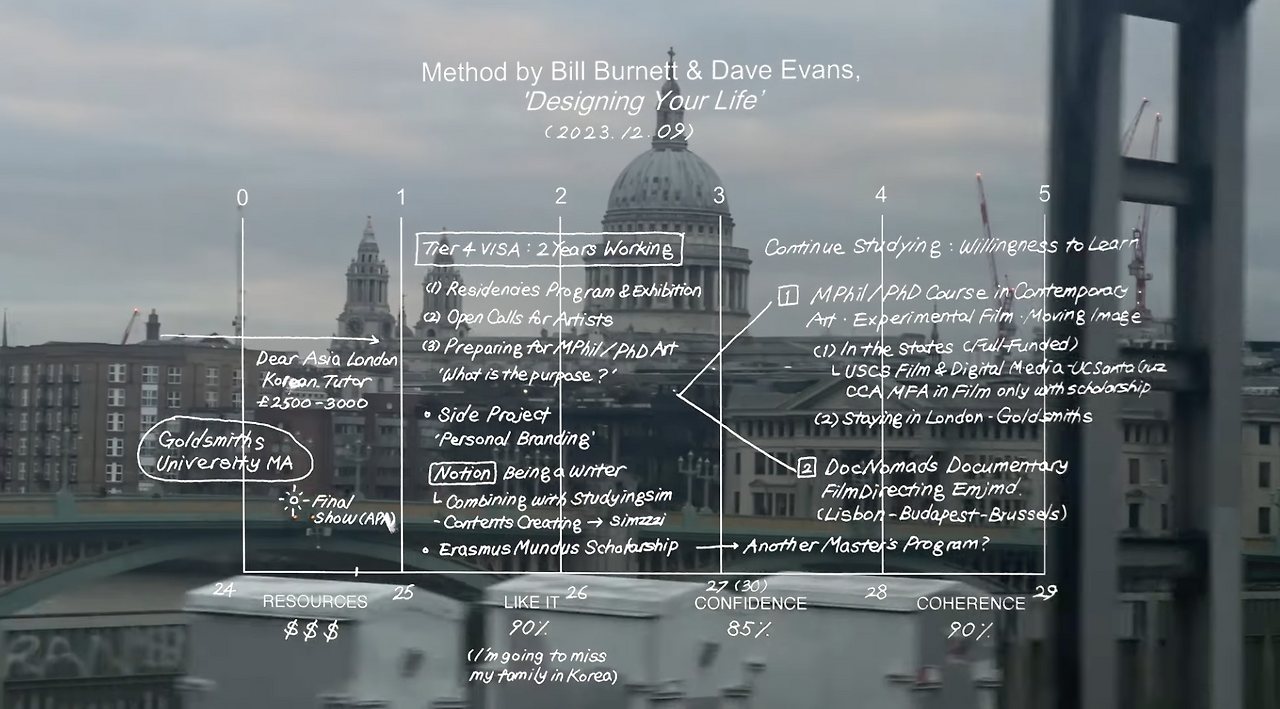 Method by Bill Burnett & Dave Evans,
'Designing Your Life'
(2023.12.09)
0 1 2 3 4 5
Tier 4 VISA : 2 Years Working
(1) Residencies Program & Exhibition
(2) Open Calls for Artists
(3) Preparing for MPhil/PhD Art
'What is the purpose?'
• Side Project
'Personal Branding'
Notion Being a Writer
└ Combining with Studyingsim
- Contents Creating → simzzi
• Erasmus Mundus Scholarship → Another Master's Program?
Dear Asia London
Korean Tutor
£2500-3000
Goldsmiths
University MA
Final
show (APR)
Continue Studying : Willingness to Learn
1 MPhil/PhD Course in Contemporary
Art · Experimental Film · Moving Image
(1) In the States (Full-Funded)
└ USCS Film & Digital Media - UC Santa Cruz
CCA MFA in Film only with scholarship
(2) Staying in London - Goldsmiths
2 DocNomads Documentary
Film Directing Emjmd.
(Lisbon - Budapest - Brussels)
24 25 26 27 (30) 28 29
RESOURCES LIKE IT CONFIDENCE COHERENCE
$ $ $ 90% 85% 90%
(I'm going to miss
my family in Korea)